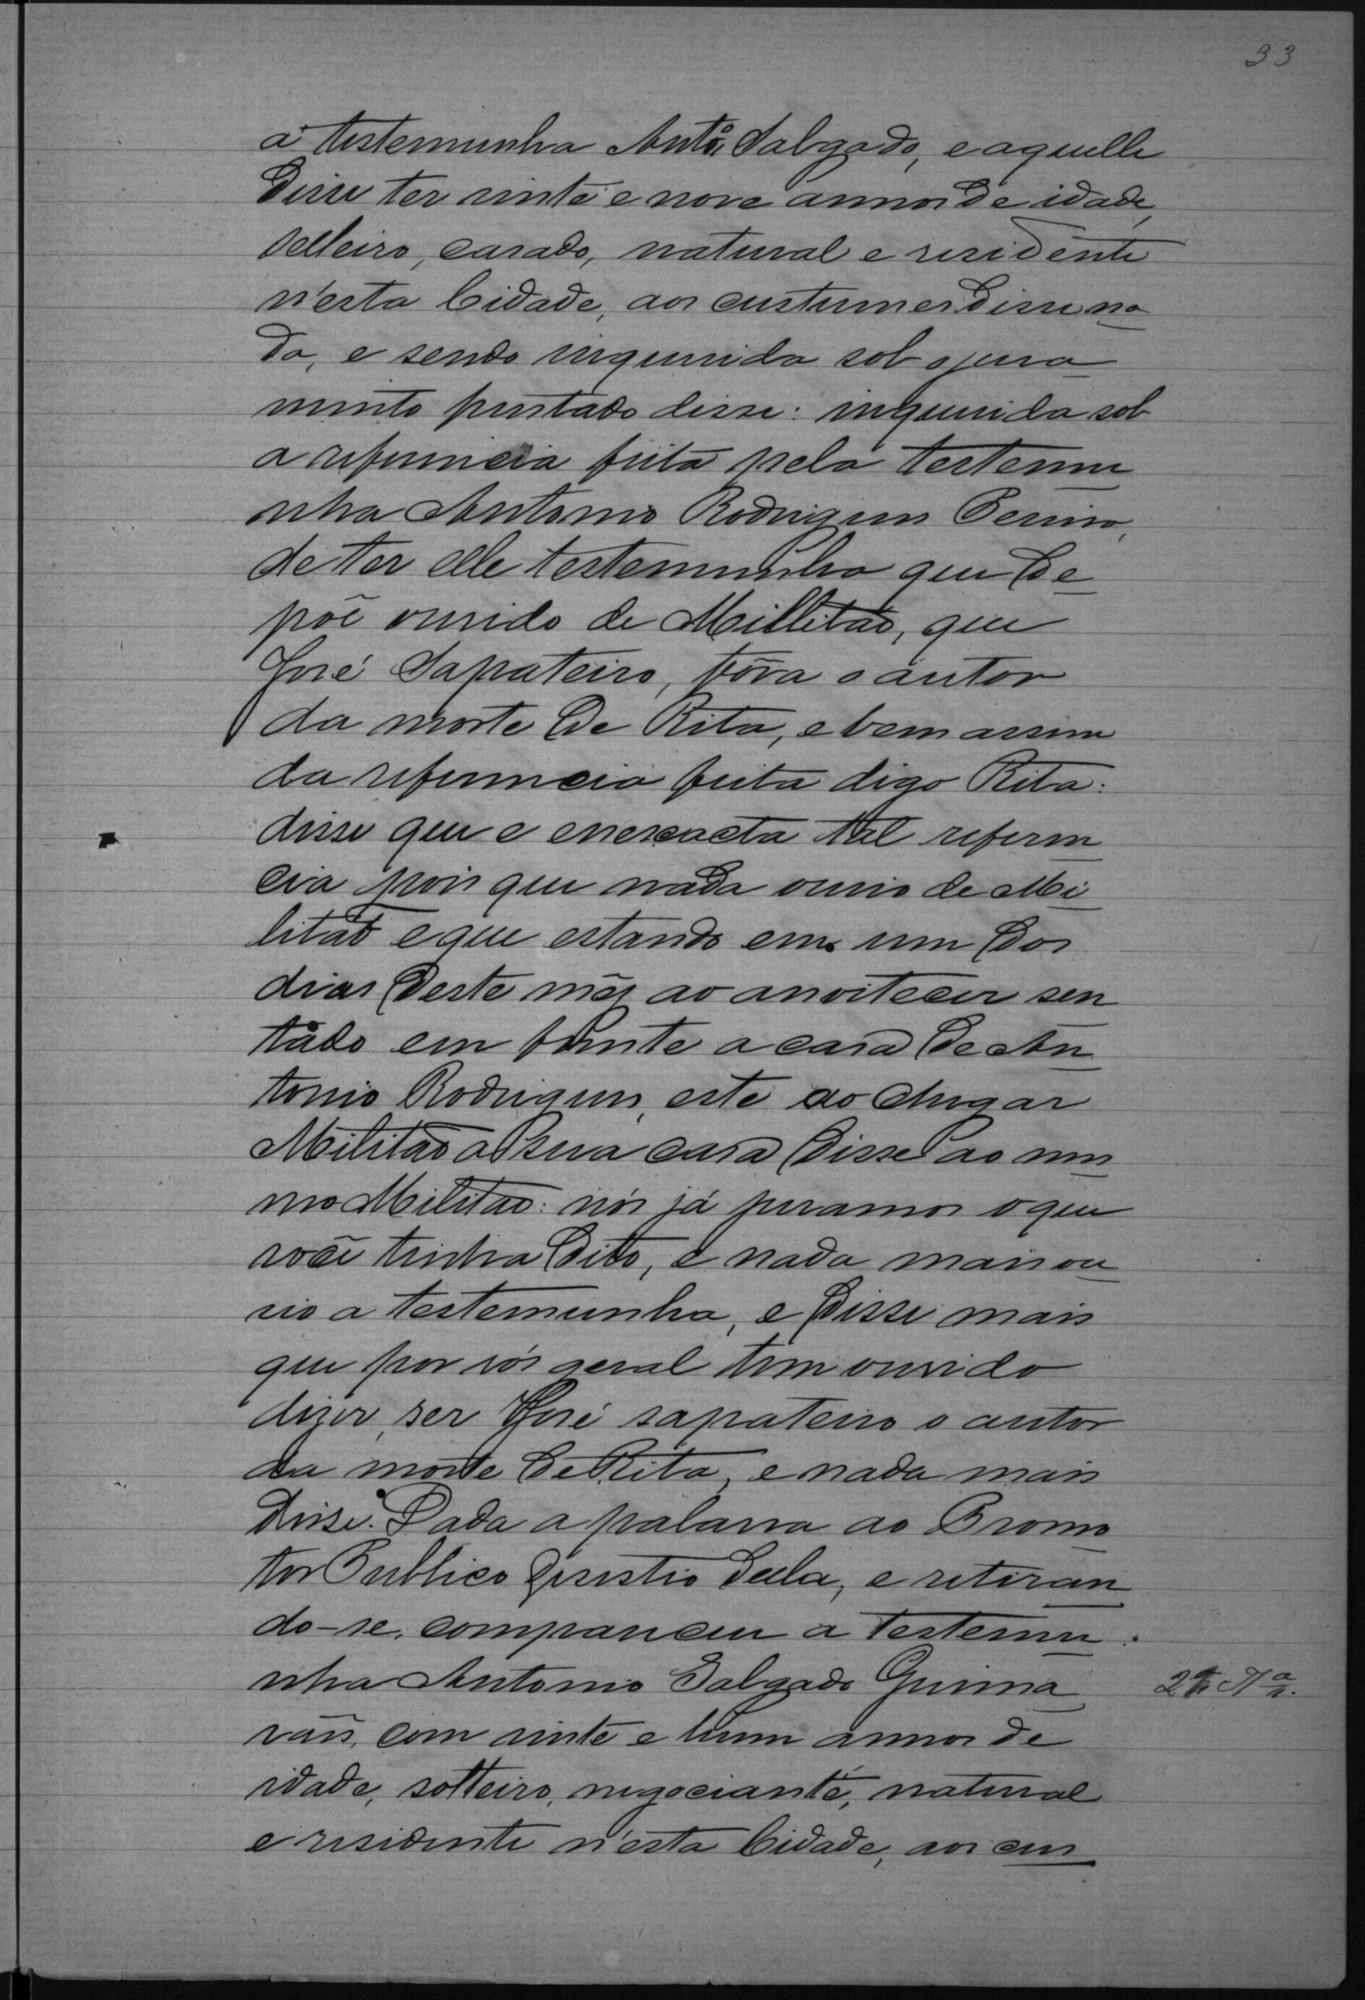 33
a testemunha Antº Salgado, e aquelle
Disse ter vinte e nove annos de idade,
selleiro, casado, natural e residente
n'esta Cidade, aos custumes disse na
da, e sendo inquirida sob o jura
mento prestado disse: inquirida sob
a referencia feita pela testemu
nha Antonio Rodrigues Pereira,
de ter elle testemunha que de
põe ouvido de Millitão, que
José Sapateiro, fôra o autor
da morte de Rita, e bem assim
da referencia feita digo Rita:
disse que e enexacta tal referen
cia pois que nada ouvio de Mi
litão e que estando em um dos
dias deste mês ao anoitecer sen
tado em frente a casa de An
tonio Rodrigues, este ao chegar
Militão a sua casa disse ao mes
mo Militão: nós já juramos o que
você tinha dito, e nada mais ou
vio a testemunha, e disse mais
que por vós geral tem ouvido
dizer, ser José sapateiro o autor
da morte de Rita, e nada mais
disse. Dada a palavra ao Promo
tor Publico desistio della, e retiran
do-se, compareceu a testemu
nha Antonio Salgado Guima
2ª Tª
rães, com vinte e hum annos de
idade, solteiro, negociante, natural
e residente n'esta Cidade, aos cus